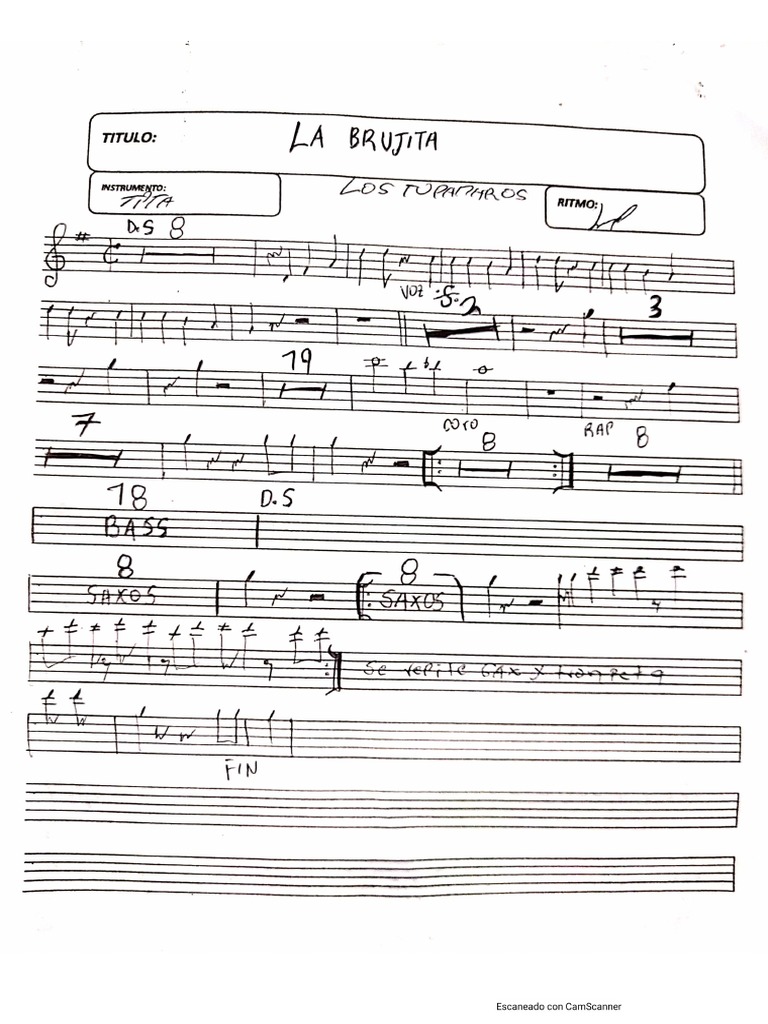 TITULO: LA BRUJITA
INSTRUMENTO: TPTA LOS TUPAMAROS RITMO:
D.S 8
VOZ :S: 2 3
19
CORO RAP
7 8 8
18 D.S
BASS
8 8
SAXOS SAXOS
Se repite SAX y trompeta
FIN
Escaneado con CamScanner